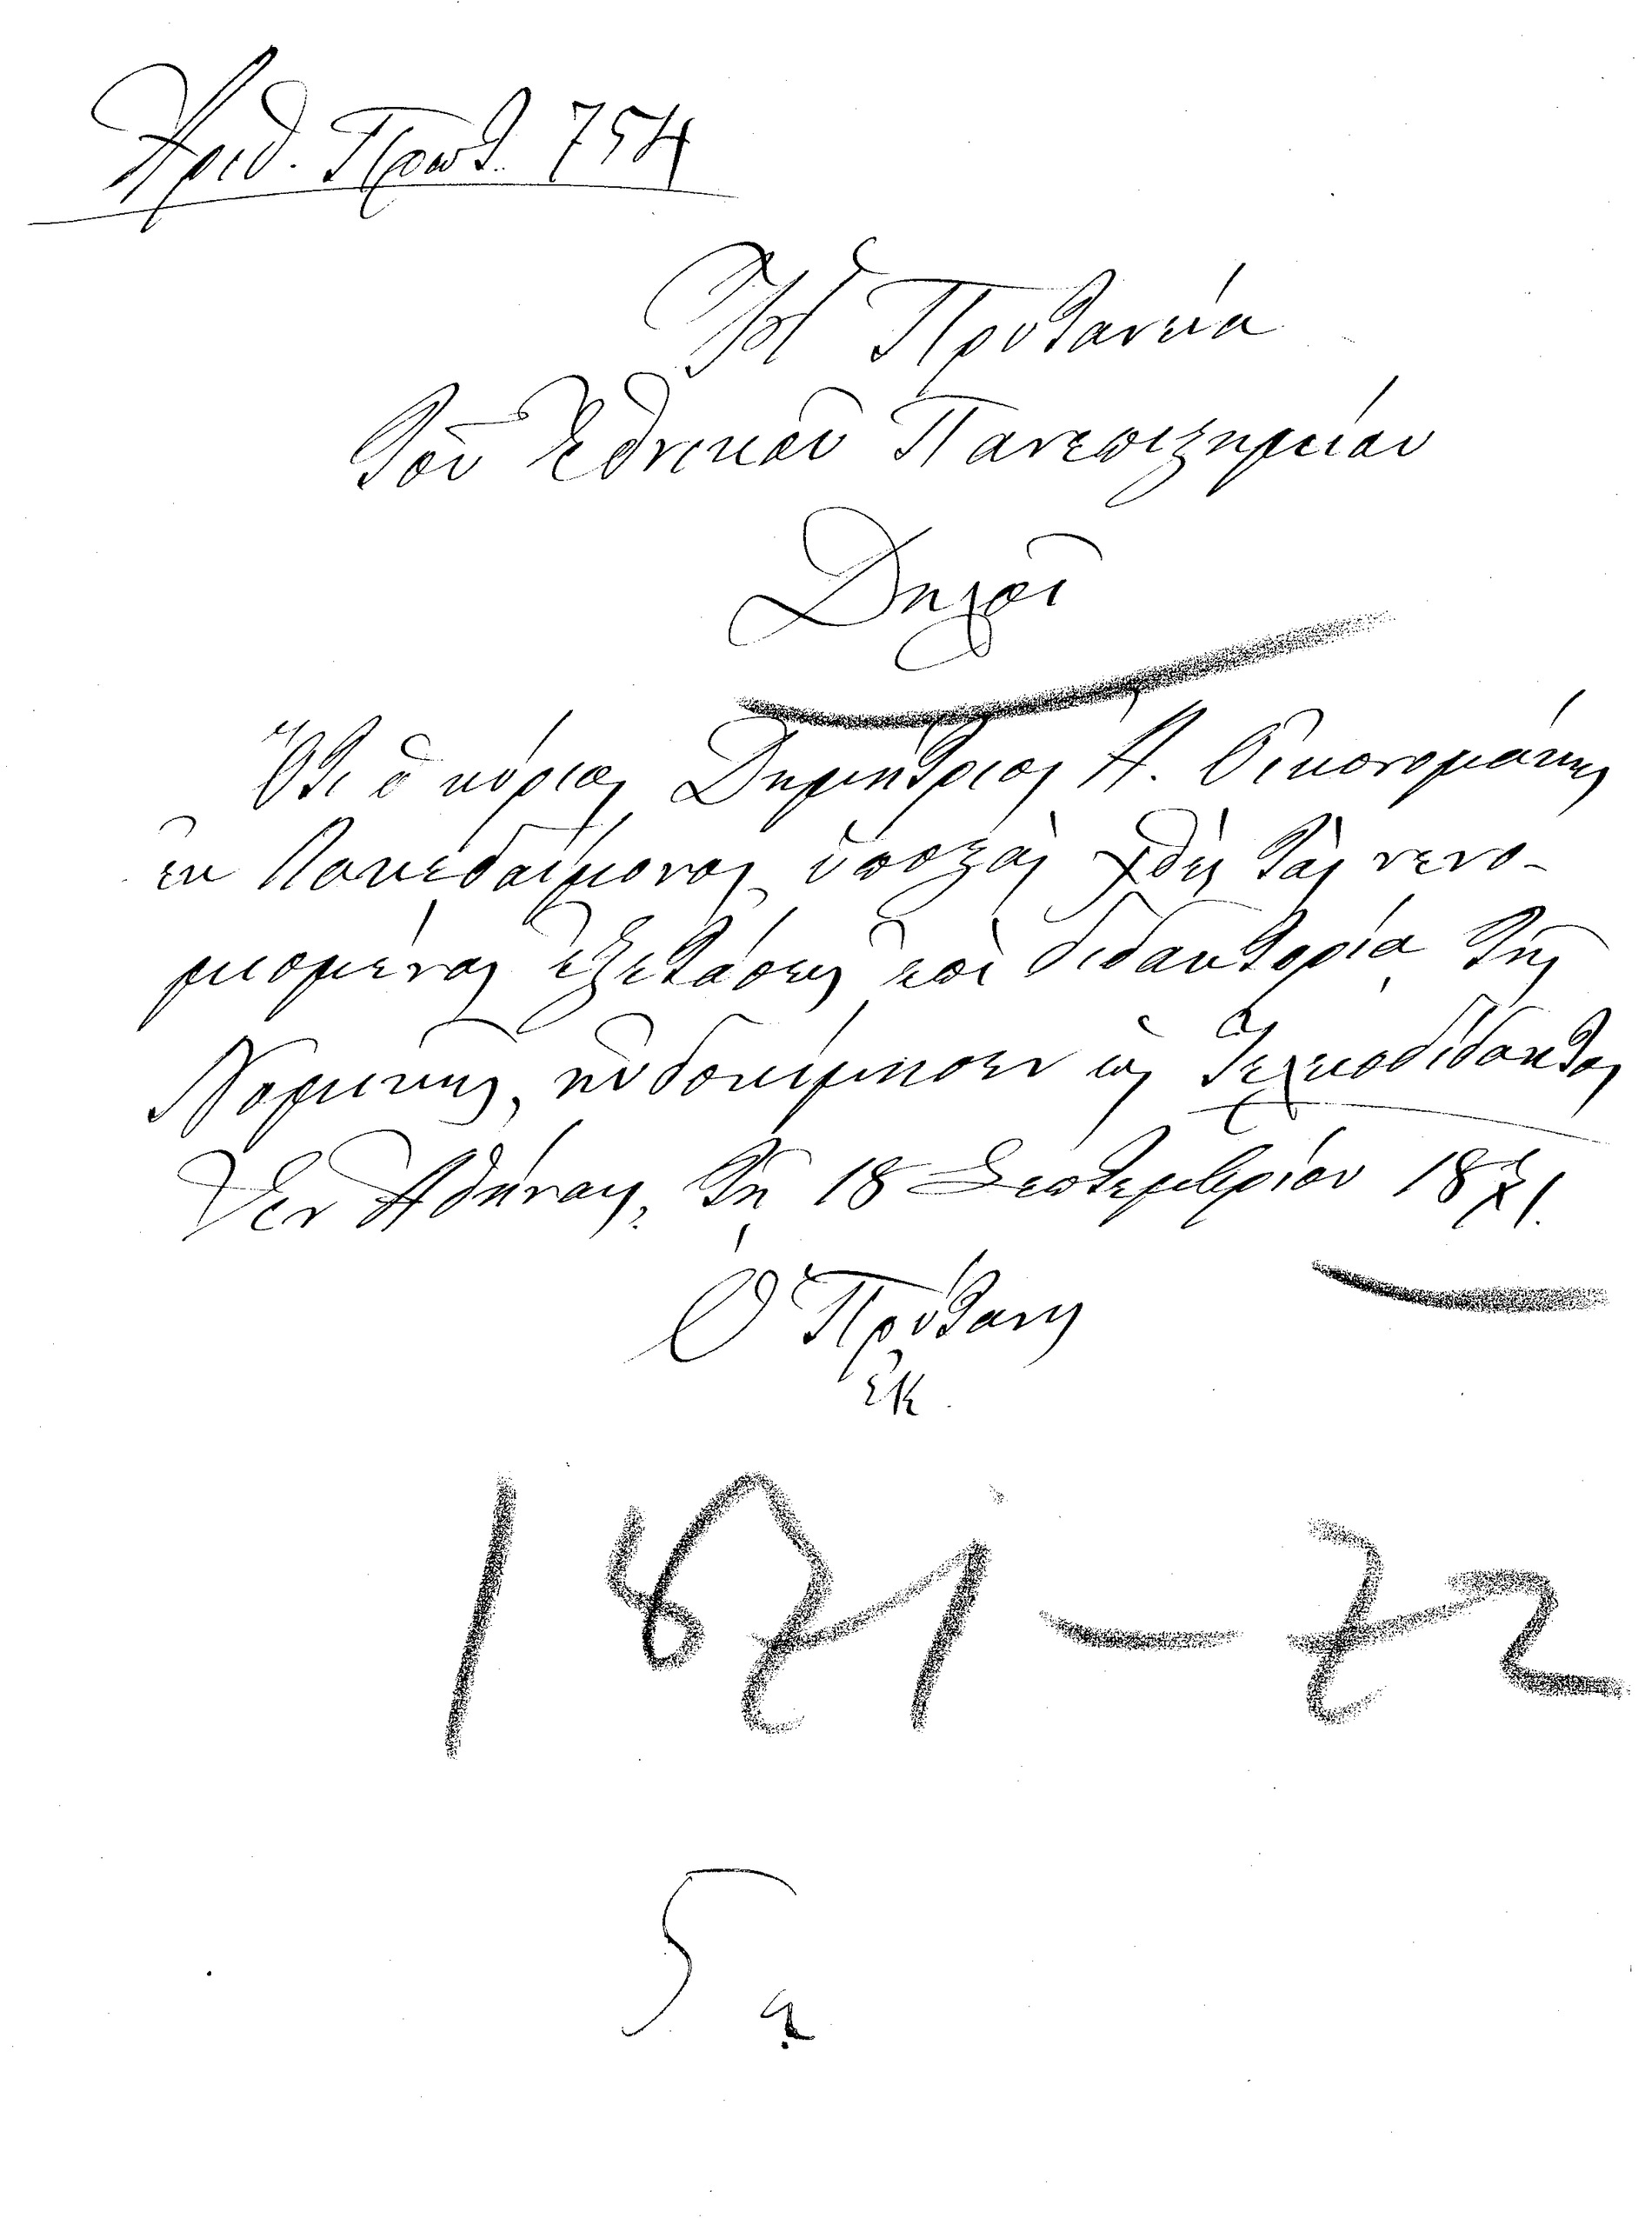 Ἀριθ. Πρωτ. 754
Ἡ Πρυτανεία
τοῦ Ἐθνικοῦ Πανεπιστημείου
Δηλοῖ
Ὅτι ὁ κύριος Δημήτριος Α. Οἰκονομάκης
ἐκ Λακεδαίμονος, ὑποστὰς χθὲς τὰς νενο-
μισμένας ἐξετάσεις ἐπὶ διδακτορίᾳ τῆς
Νομικῆς, ηὐδοκίμησεν ὡς τελειοδίδακτος
Ἐν Ἀθήναις, τῇ 18 Σεπτεμβρίου 1871.
Ὁ Πρύτανις
ΕΚ.
1871–72
5